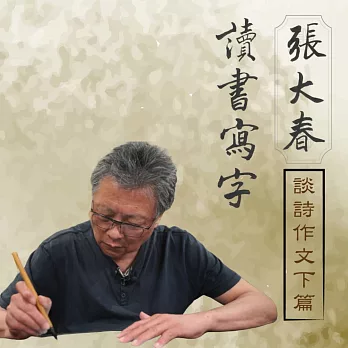 張大春
讀書寫字
談詩作文下篇